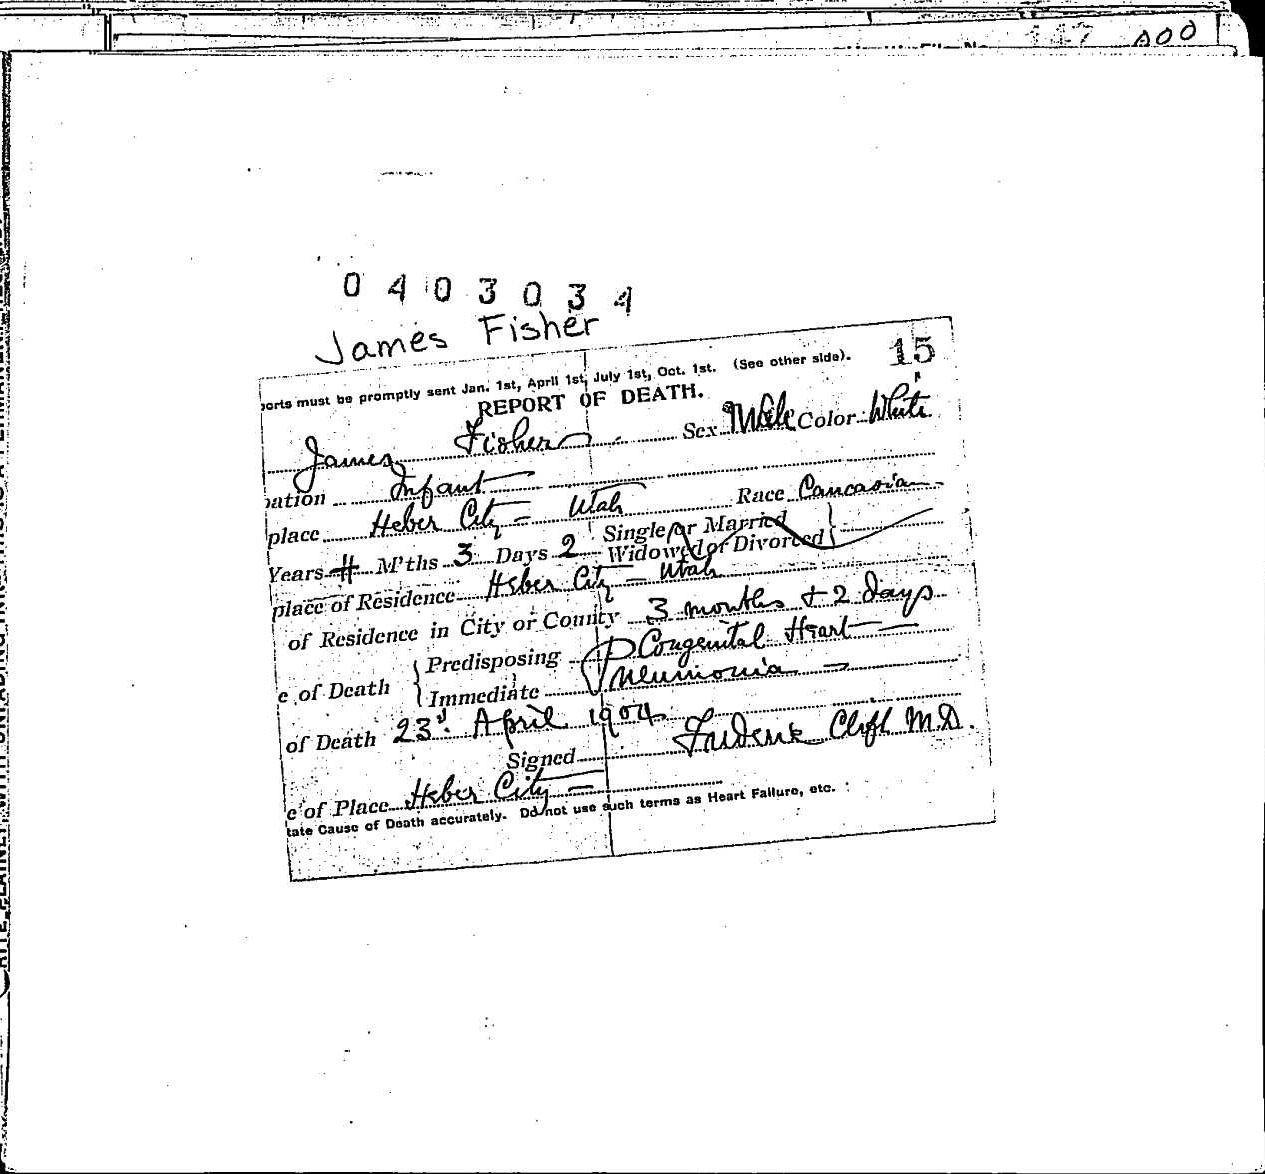 File No.
0403034
James Fisher
15
orts must be promptly sent Jan. 1st, April 1st, July 1st, Oct. 1st. (See other side).
REPORT OF DEATH.
James Fisher Sex Male Color White
ation Infant
place Heber City - Utah Race Caucasian
Years # M'ths 3 Days 2 Single or Married
Widowed or Divorced
place of Residence Heber City - Utah
of Residence in City or County 3 months & 2 days
e of Death Predisposing Congenital Heart
Immediate Pneumonia
of Death 23d. April 1904
Signed Frederick Clift M.D.
e of Place Heber City
tate Cause of Death accurately. Do not use such terms as Heart Failure, etc.